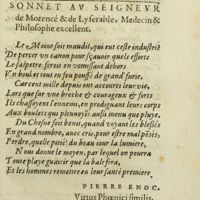 SONNET AV SEIGNEVR
de Morencé & de Lyserable, Medecin &
Philosophe excellent.
Le Moine soit maudit, qui eut ceste industrie
De percer vn canon pour sçauoir quels efforts
Le salpetre feroit en vomissant dehors
Vn boulet tout en feu poussé de grand furie.
Car cent mille depuis ont accourci leur vie,
Lors que sur vne breche & courageux & forts
Ils chassoyent l'ennemi, en prodiguant leurs corps
Aux boulets qui pleuuoyẽt aussi menu que pluye.
Du Chesne soit beni, quand voyant les blessés
En grand nombre, auec cris, pour estre mal pẽsés,
Perdre, quelle pitié! du beau iour la lumiere.
Nous donne le moyen, par lequel on pourra
Toute playe guarir que la bale fera,
Et les hommes remettre en leur santé premiere.
PIERRE ENOC.
Virtus Phœnici similis.